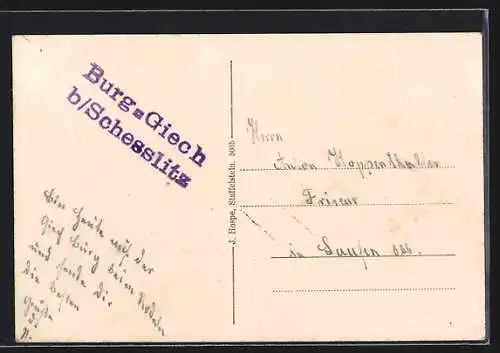 Burg=Giech
b/Schesslitz
Bin heute auf der
Giech Burg beim Rodeln
und sende dir
die besten
Grüße
J. Hospe, Staffelstein. 5035
Herrn
Anton Koppenthaller
Friseur
in Laufen Obb.